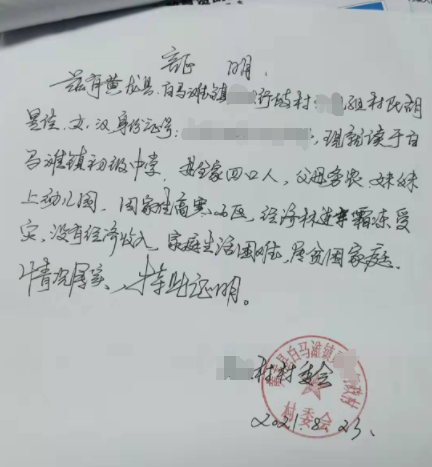 证 明
兹有黄龙县白马滩镇 行坡村 组村民胡
是佳,女,汉身份证号: ,现就读于白
马滩镇初级中学,其全家四口人,父母务农 妹妹
上幼儿园,因家住高寒山区,经济林遭寒霜冻受
灾,没有经济收入,家庭生活困难,属贫困家庭,
情况属实,特此证明。
村村委会
县白马滩镇
村委会
2021.8.23.